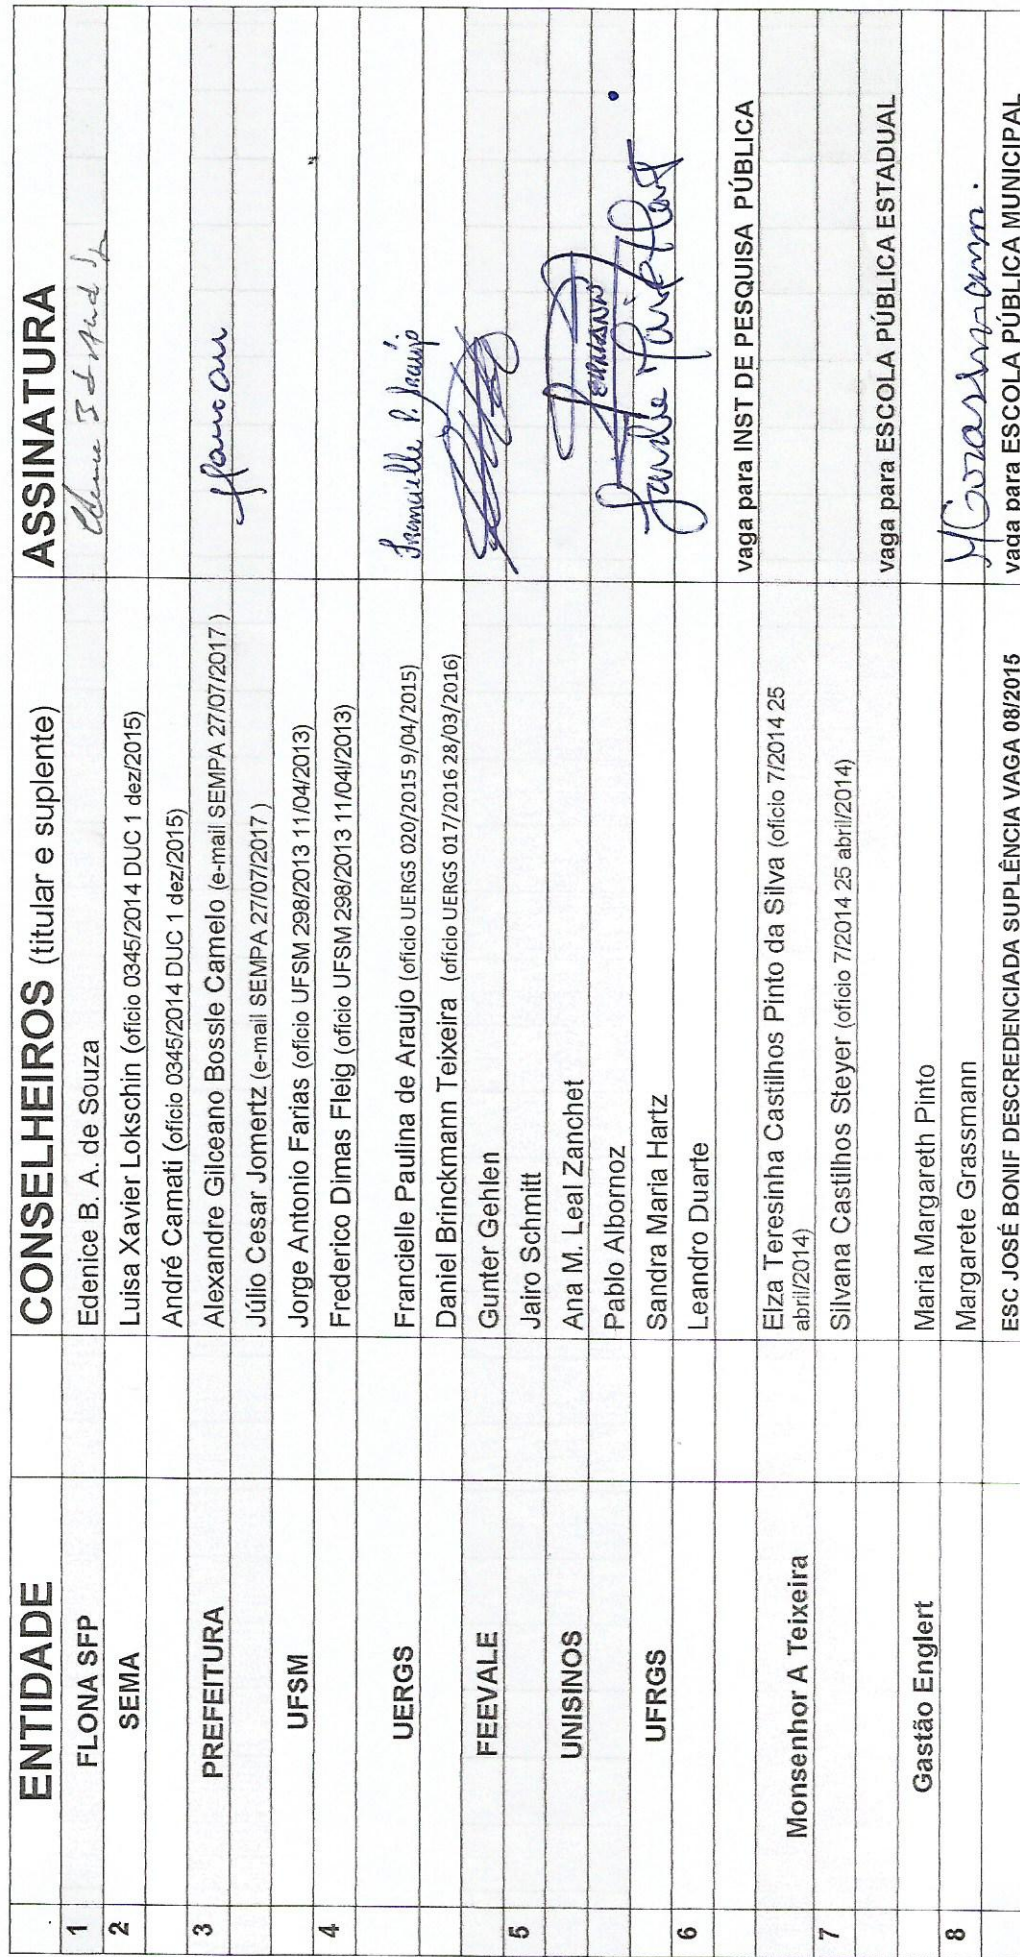 ENTIDADE CONSELHEIROS (titular e suplente) ASSINATURA
1 FLONA SFP Edenice B. A. de Souza
2 SEMA Luisa Xavier Lokschin (ofício 0345/2014 DUC 1 dez/2015)
André Camati (ofício 0345/2014 DUC 1 dez/2015)
3 PREFEITURA Alexandre Gilceano Bossle Camelo (e-mail SEMPA 27/07/2017 )
Júlio Cesar Jomertz (e-mail SEMPA 27/07/2017 )
4 UFSM Jorge Antonio Farias (ofício UFSM 298/2013 11/04/2013)
Frederico Dimas Fleig (ofício UFSM 298/2013 11/04l/2013)
UERGS Francielle Paulina de Araujo (ofício UERGS 020/2015 9/04/2015) Francielle P. Araújo
Daniel Brinckmann Teixeira (ofício UERGS 017/2016 28/03/2016)
FEEVALE Gunter Gehlen
5 Jairo Schmitt
UNISINOS Ana M. Leal Zanchet
Pablo Albornoz
UFRGS Sandra Maria Hartz Sandra Maria Hartz
6 Leandro Duarte
vaga para INST DE PESQUISA PÚBLICA
Monsenhor A Teixeira Elza Teresinha Castilhos Pinto da Silva (ofício 7/2014 25
abril/2014)
7 Silvana Castilhos Steyer (ofício 7/2014 25 abril/2014)
vaga para ESCOLA PÚBLICA ESTADUAL
Gastão Englert Maria Margareth Pinto
8 Margarete Grassmann MGrassmann.
ESC JOSÉ BONIF DESCREDENCIADA SUPLÊNCIA VAGA 08/2015 vaga para ESCOLA PÚBLICA MUNICIPAL